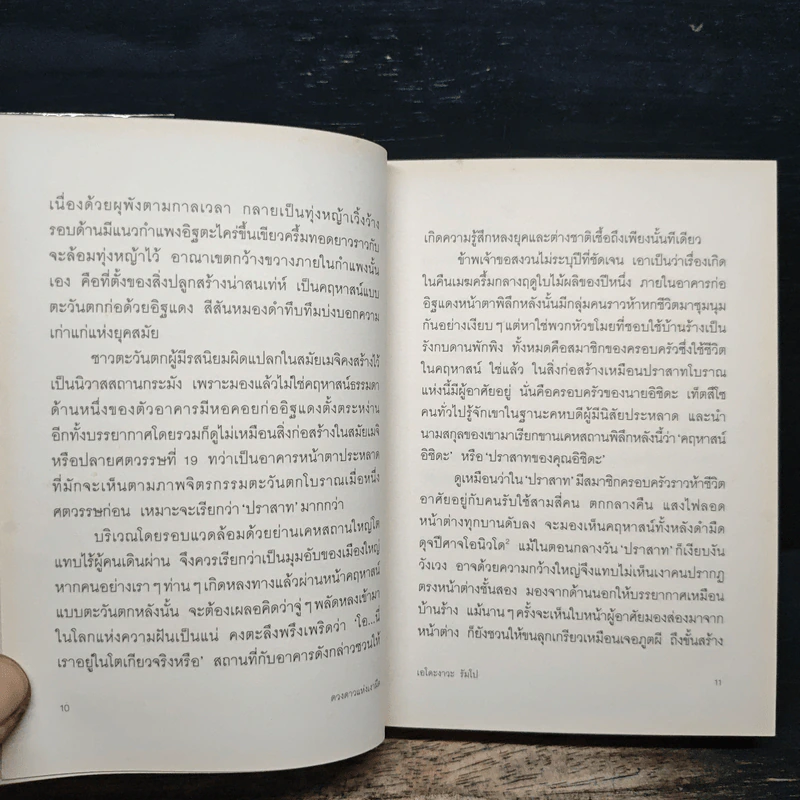 เนื่องด้วยผุพังตามกาลเวลา กลายเป็นทุ่งหญ้าเวิ้งว้าง
รอบด้านมีแนวกำแพงอิฐตะไคร่ขึ้นเขียวครึ้มทอดยาวราวกับ
จะล้อมทุ่งหญ้าไว้ อาณาเขตกว้างขวางภายในกำแพงนั้น
เอง คือที่ตั้งของสิ่งปลูกสร้างน่าสนเท่ห์ เป็นคฤหาสน์แบบ
ตะวันตกก่อด้วยอิฐแดง สีสันหมองดำทึบทึมบ่งบอกความ
เก่าแก่แห่งยุคสมัย
ชาวตะวันตกผู้มีรสนิยมผิดแปลกในสมัยเมจิคงสร้างไว้
เป็นนิวาสสถานกระมัง เพราะมองแล้วไม่ใช่คฤหาสน์ธรรมดา
ด้านหนึ่งของตัวอาคารมีหอคอยก่ออิฐแดงตั้งตระหง่าน
อีกทั้งบรรยากาศโดยรวมก็ดูไม่เหมือนสิ่งก่อสร้างในสมัยเมจิ
หรือปลายศตวรรษที่ 19 ทว่าเป็นอาคารหน้าตาประหลาด
ที่มักจะเห็นตามภาพจิตรกรรมตะวันตกโบราณเมื่อหนึ่ง
ศตวรรษก่อน เหมาะจะเรียกว่า 'ปราสาท' มากกว่า
บริเวณโดยรอบแวดล้อมด้วยย่านเคหสถานใหญ่โต
แทบไร้ผู้คนเดินผ่าน จึงควรเรียกว่าเป็นมุมอับของเมืองใหญ่
หากคนอย่างเรา ๆ ท่าน ๆ เกิดหลงทางแล้วผ่านหน้าคฤหาสน์
แบบตะวันตกหลังนั้น จะต้องเผลอคิดว่าจู่ ๆ พลัดหลงเข้ามา
ในโลกแห่งความฝันเป็นแน่ คงตะลึงพรึงเพริดว่า 'โอ...นี่
เราอยู่ในโตเกียวจริงหรือ' สถานที่กับอาคารดังกล่าวชวนให้
ดวงตาวแห่งเงามืด
10
เกิดความรู้สึกหลงยุคและต่างชาติเชื้อถึงเพียงนั้นทีเดียว
ข้าพเจ้าขอสงวนไม่ระบุปีที่ชัดเจน เอาเป็นว่าเรื่องเกิด
ในคืนเมฆครึ้มกลางฤดูใบไม้ผลิของปีหนึ่ง ภายในอาคารก่อ
อิฐแดงหน้าตาพิลึกหลังนั้นมีกลุ่มคนราวห้าหกชีวิตมาชุมนุม
กันอย่างเงียบ ๆ แต่หาใช่พวกหัวขโมยที่ชอบใช้บ้านร้างเป็น
รังกบดานพักพิง ทั้งหมดคือสมาชิกของครอบครัวซึ่งใช้ชีวิต
ในคฤหาสน์ ใช่แล้ว ในสิ่งก่อสร้างเหมือนปราสาทโบราณ
แห่งนี้มีผู้อาศัยอยู่ นั่นคือครอบครัวของนายอิชิดะ เท็ตสึโซ
คนทั่วไปรู้จักเขาในฐานะคหบดีผู้มีนิสัยประหลาด และนำ
นามสกุลของเขามาเรียกขานเคหสถานพิลึกหลังนี้ว่า 'คฤหาสน์
อิชิดะ' หรือ 'ปราสาทของคุณอิชิดะ'
ดูเหมือนว่าใน 'ปราสาท' มีสมาชิกครอบครัวราวห้าชีวิต
อาศัยอยู่กับคนรับใช้สามสี่คน ตกกลางคืน แสงไฟลอด
หน้าต่างทุกบานดับลง จะมองเห็นคฤหาสน์ทั้งหลังดำมืด
ดุจปีศาจโอนิวโด² แม้ในตอนกลางวัน 'ปราสาท' ก็เงียบงัน
วังเวง อาจด้วยความกว้างใหญ่จึงแทบไม่เห็นเงาคนปรากฏ
ตรงหน้าต่างชั้นสอง มองจากด้านนอกให้บรรยากาศเหมือน
บ้านร้าง แม้นาน ๆ ครั้งจะเห็นใบหน้าผู้อาศัยมองส่องมาจาก
หน้าต่าง ก็ยังชวนให้ขนลุกเกรียวเหมือนเจอภูตผี ถึงขั้นสร้าง
เอโดะงาวะ รัมโป
11